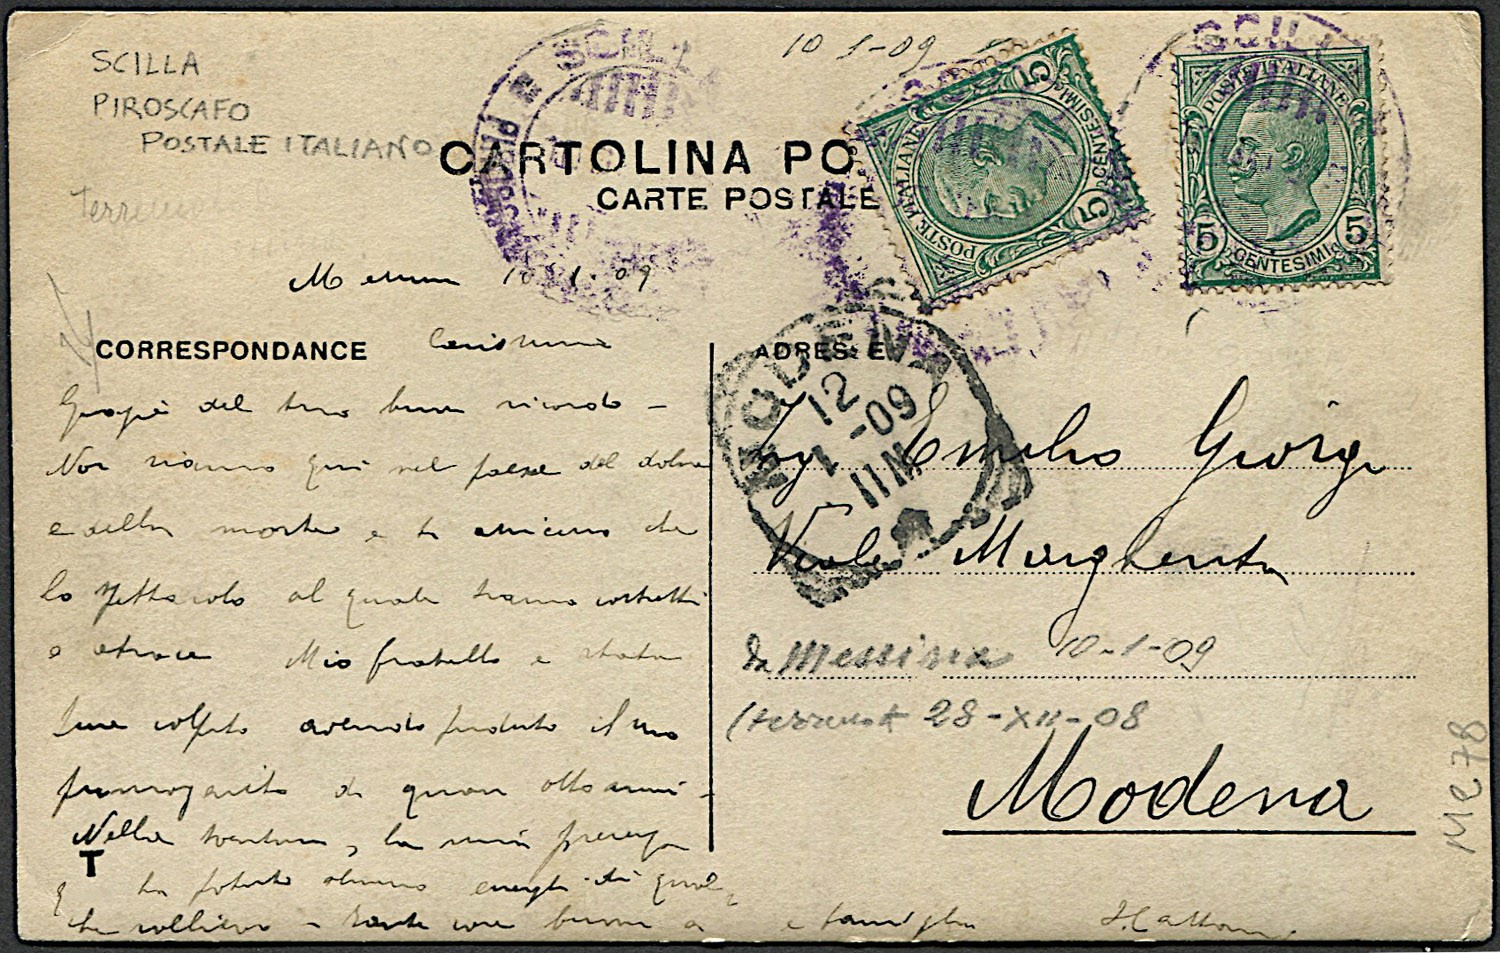 SCILLA
PIROSCAFO
POSTALE ITALIANO
10 1-09
SCILLA
PIROSCAFO
SCILL
POSTE ITALIANE
5 CENTESIMI 5
POSTE ITALIANE
5 CENTESIMI 5
CARTOLINA PO
CARTE POSTALE
10.1.09
CORRESPONDANCE
Carissimo
ADRESSE
MODENA
12
1-09
11M
Grazie del tuo buon ricordo -
Noi siamo qui nel paese del dolore
e della morte e ti assicuro che
lo spettacolo al quale siamo costretti
è atroce Mio fratello è stato
colpito avendo perduto il suo
primogenito di quasi otto anni -
Nella sventura, la mia
T
ha potuto almeno
che sollievo - tante cose buone a e famiglia
Ing. Emilio Giorgi
Viale Margherita
da Messina 10-1-09
(terremoto 28-XII-08
Modena
Me 78